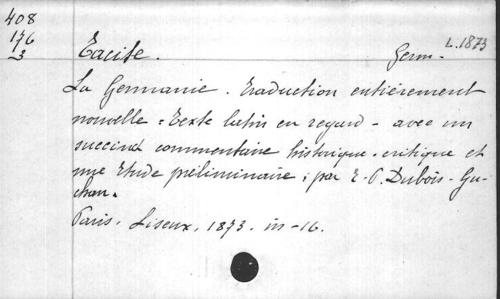 408
176
3
L. 1873
Tacite. Germ.
La Germanie. Traduction entièrement
nouvelle - Texte latin en regard - avec un
succinct commentaire historique-critique et
une étude préliminaire ; par E. P. Dubois-Gu-
chan.
Paris. Liseux, 1873. in-16.